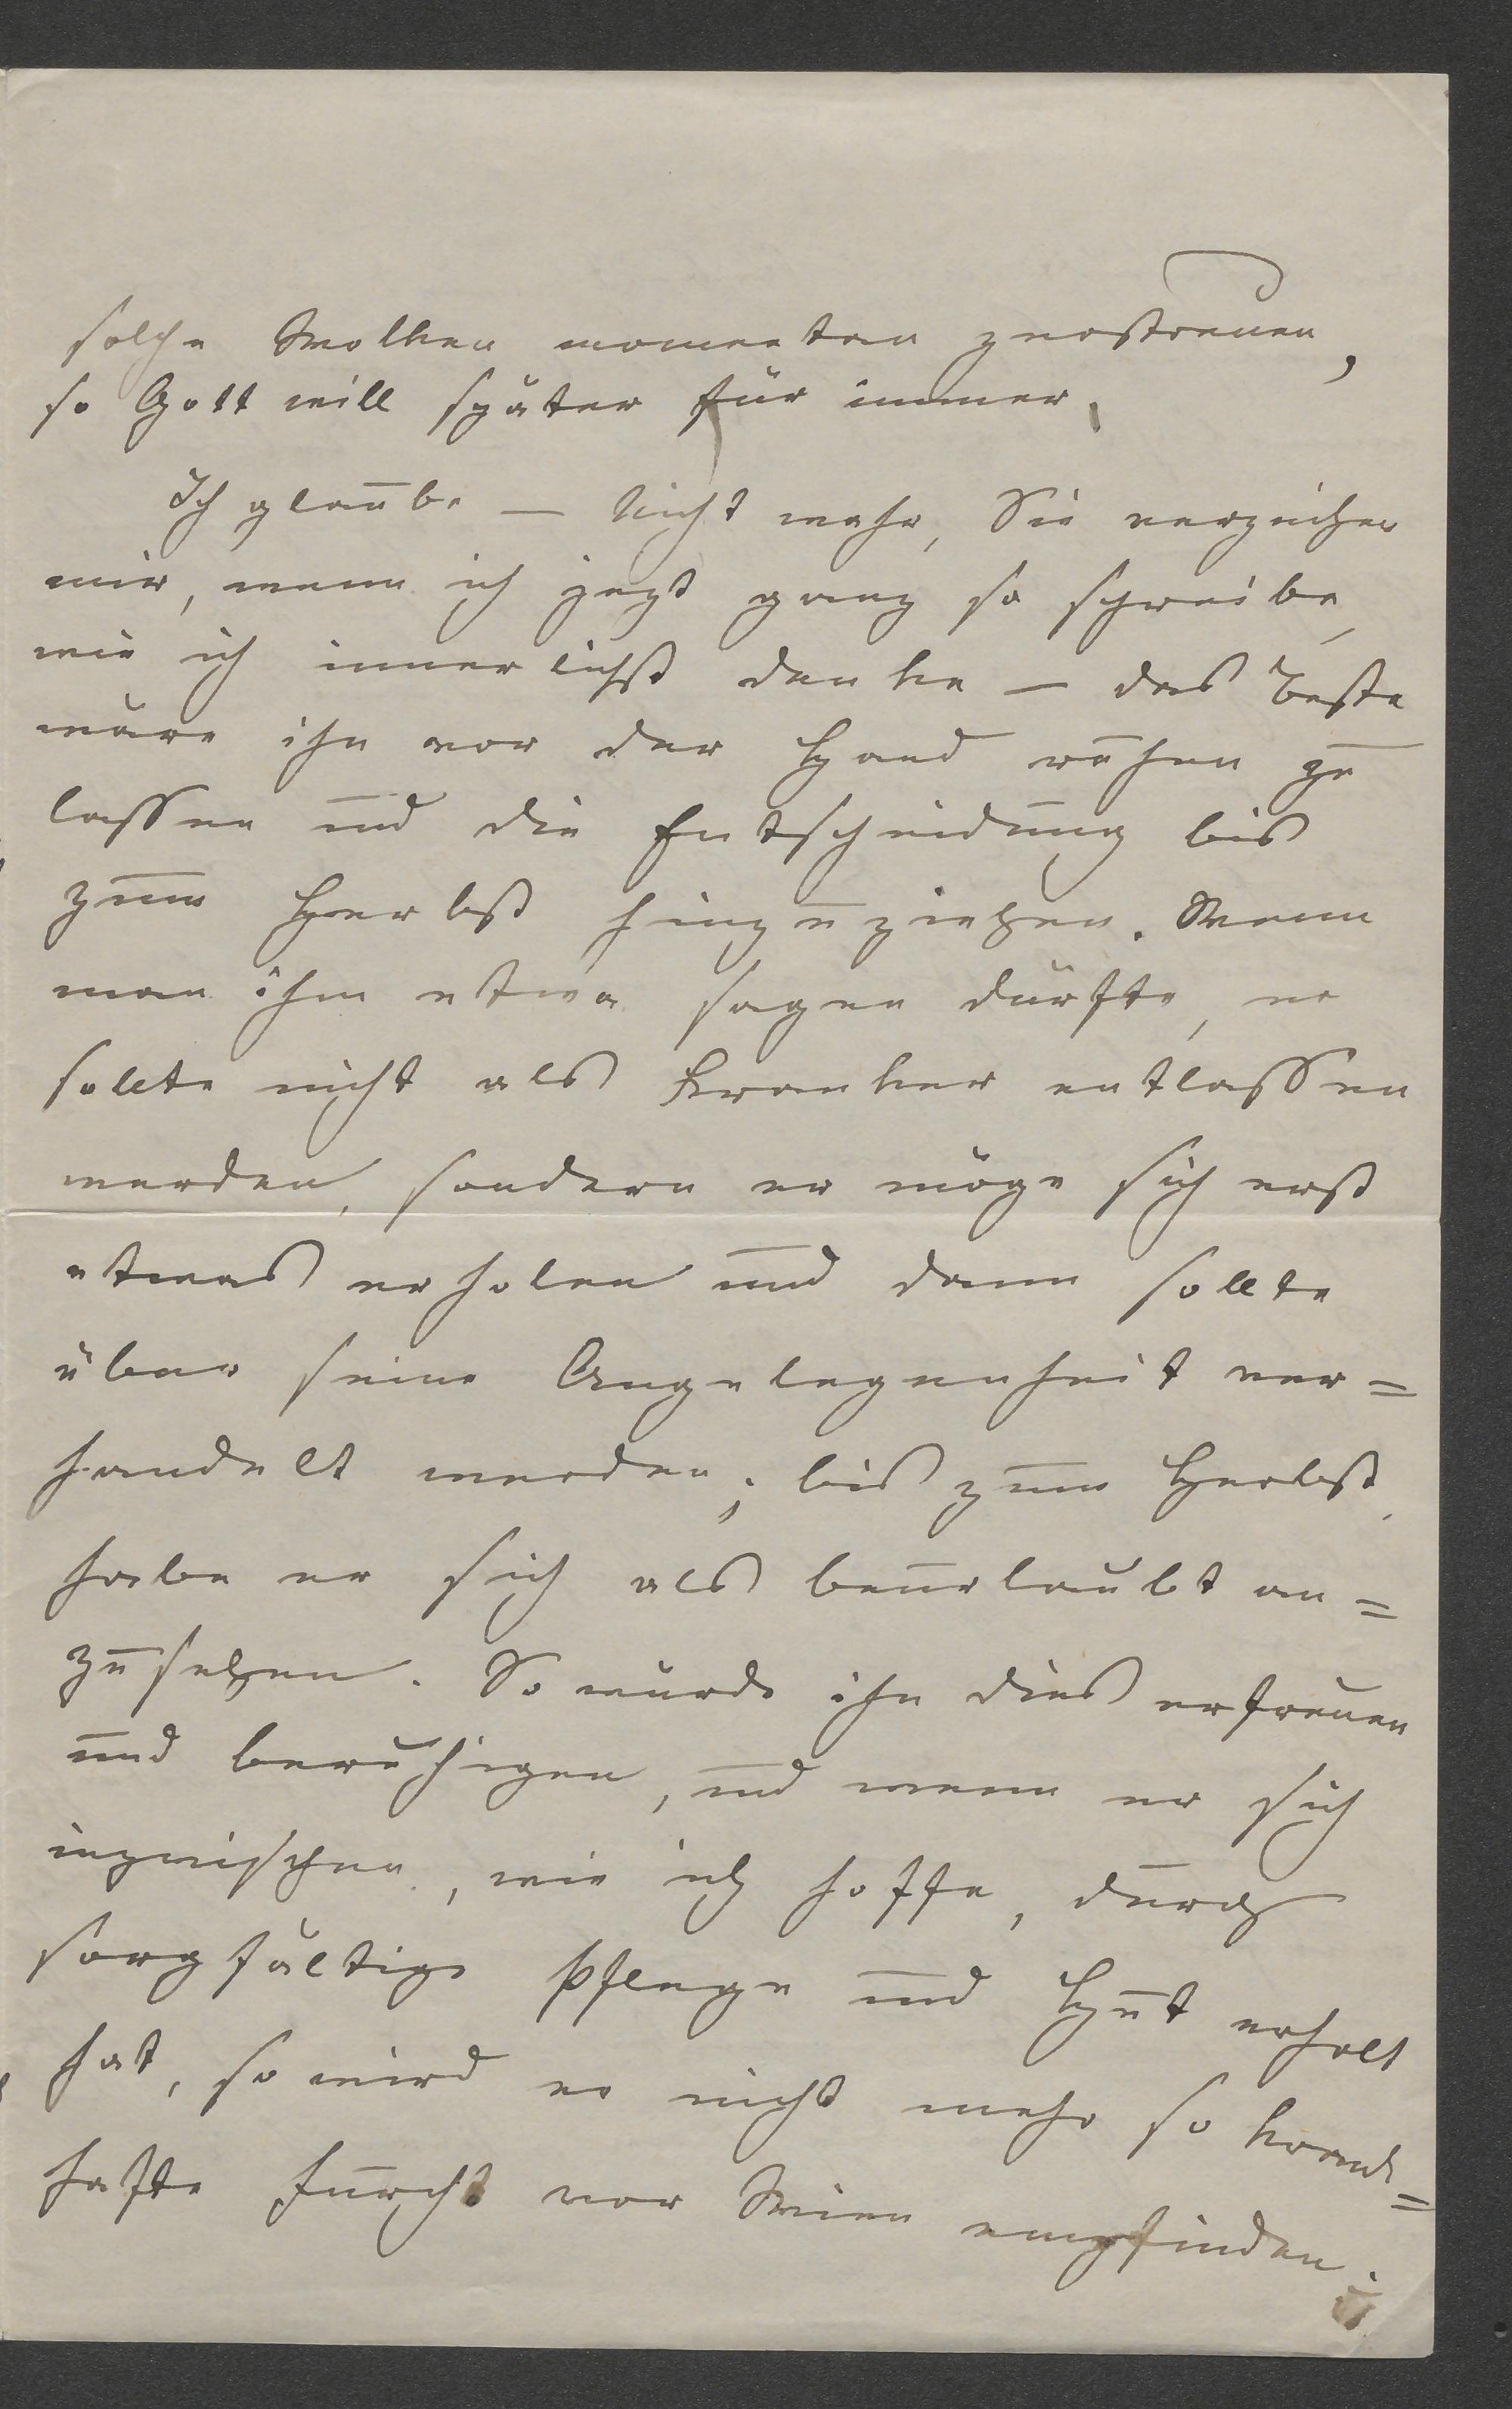 solche Wolken momentan zerstreuen,
so Gott will später für immer.
Ich glaube — Nicht wahr, Sie verzeihen
mir, wenn ich jezt ganz so schreibe,
wie ich innerlichst denke — das Beste
wäre ihn vor der Hand ruhen zu
lassen und die Entscheidung bis
zum Herbst hinzuziehen. Wenn
man ihm etwa sagen dürfte, er
sollte nicht als Kranker entlassen
werden, sondern er möge sich erst
etwas erholen und dann sollte
über seine Angelegenheit ver=
handelt werden; bis zum Herbst,
habe er sich als beurlaubt an=
zusehen. So würde ihn dies erfreuen
und beruhigen, und wenn er sich
inzwischen, wie ich hoffe, durch
sorgfältige Pflege und Hut erholt
hat, so wird er nicht mehr so krank=
hafte Furcht vor Wien empfinden.